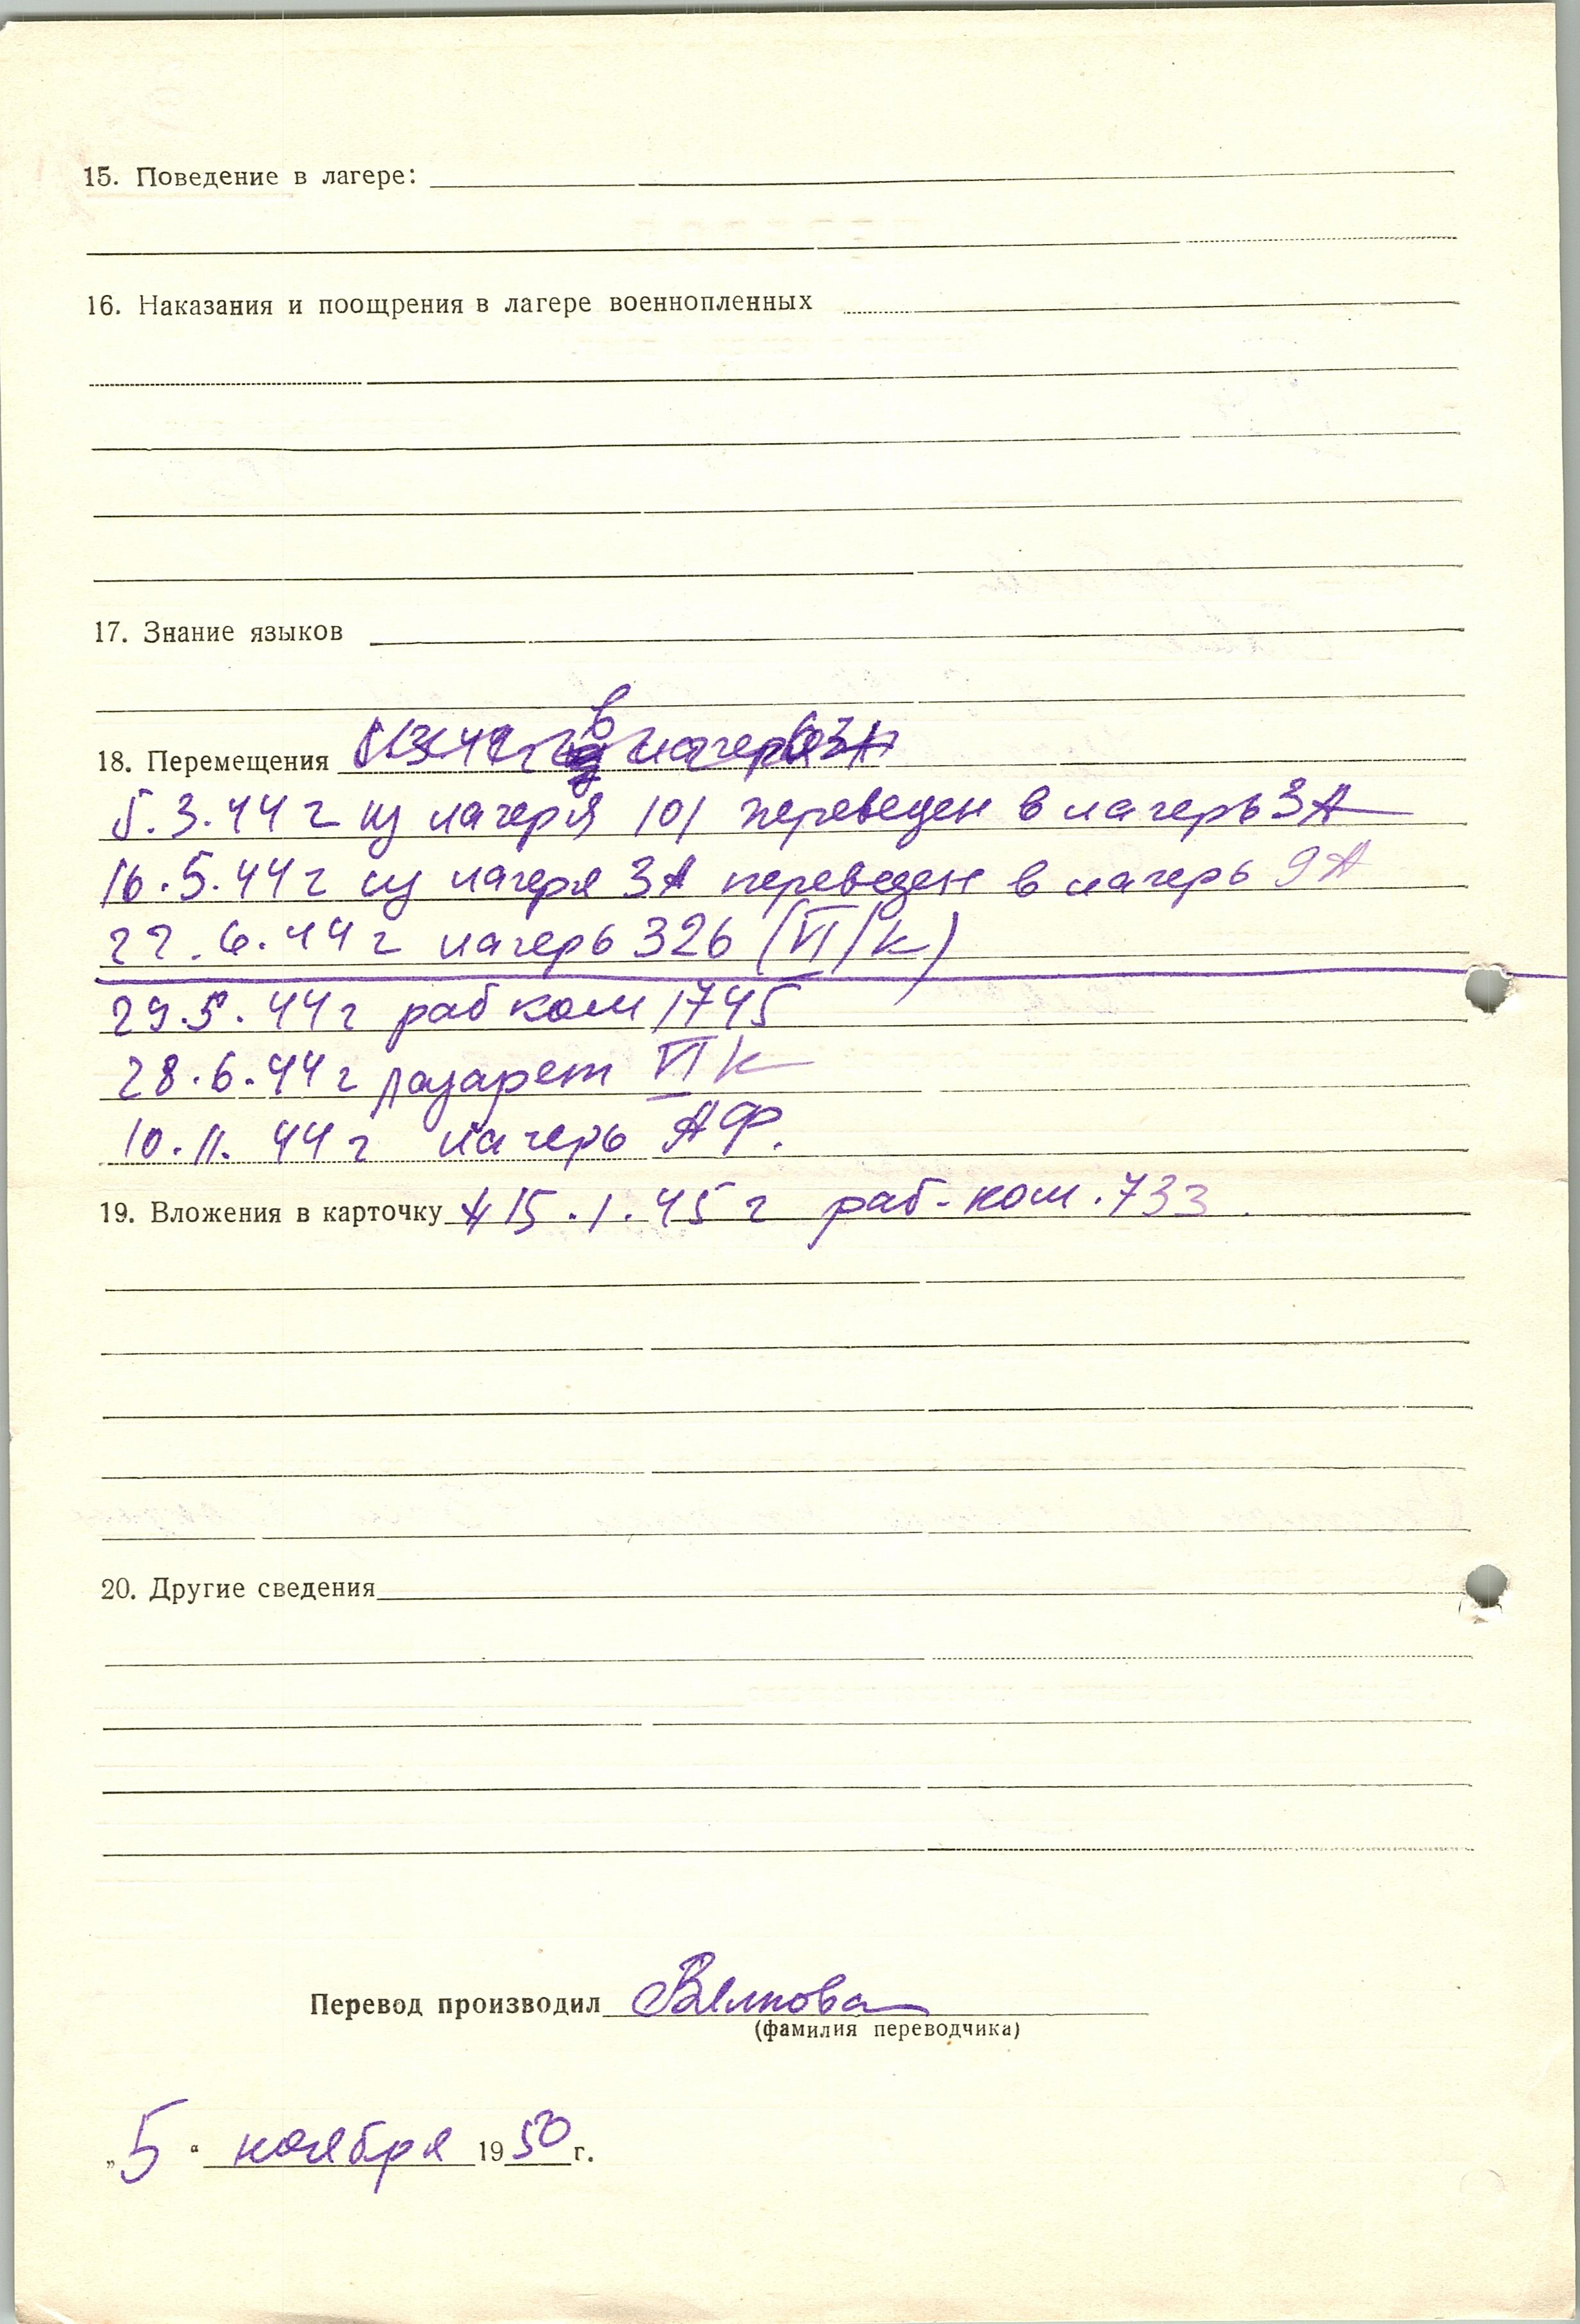 15. Поведение в лагере:
16. Наказания и поощрения в лагере военнопленных
17. Знание языков
18. Перемещения в лагерь 3А
5.3.44 г из лагеря 101 переведен в лагерь 3А
16.5.44 г из лагеря 3А переведен в лагерь 9А
22.6.44 г лагерь 326 (VI/к)
29.5.44 г раб ком 1745
28.6.44 г лазарет VI к
10.11.44 г лагерь АФ.
19. Вложения в карточку 15.1.45 г раб-ком.733.
20. Другие сведения
Перевод производил
(фамилия переводчика)
„5“ ноября 1950 г.